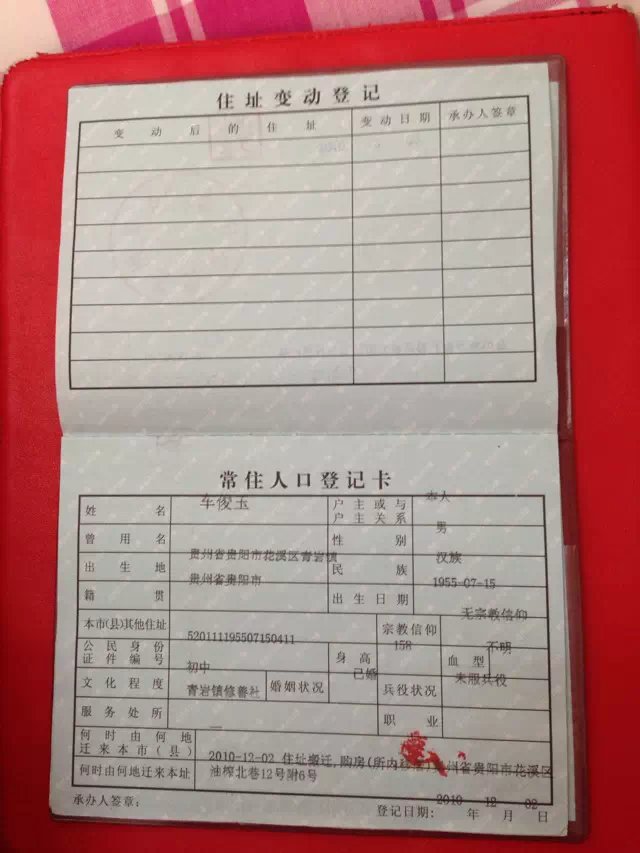 住址变动登记
变动后的住址 变动日期 承办人签章
常住人口登记卡
姓名 车俊玉 户主或与户主关系 本人
曾用名 性别 男
出生地 贵州省贵阳市花溪区青岩镇 民族 汉族
籍贯 贵州省贵阳市 出生日期 1955-07-15
本市(县)其他住址 宗教信仰 无宗教信仰
公民身份证件编号 520111195507150411 身高 158 血型 不明
文化程度 初中 婚姻状况 已婚 兵役状况 未服兵役
服务处所 青岩镇修善社 职业
何时由何地迁来本市(县) —
何时由何地迁来本址 2010-12-02 住址搬迁,购房(所内移居)贵州省贵阳市花溪区
油榨北巷12号附6号
承办人签章: 登记日期: 2010 年 12 月 02 日